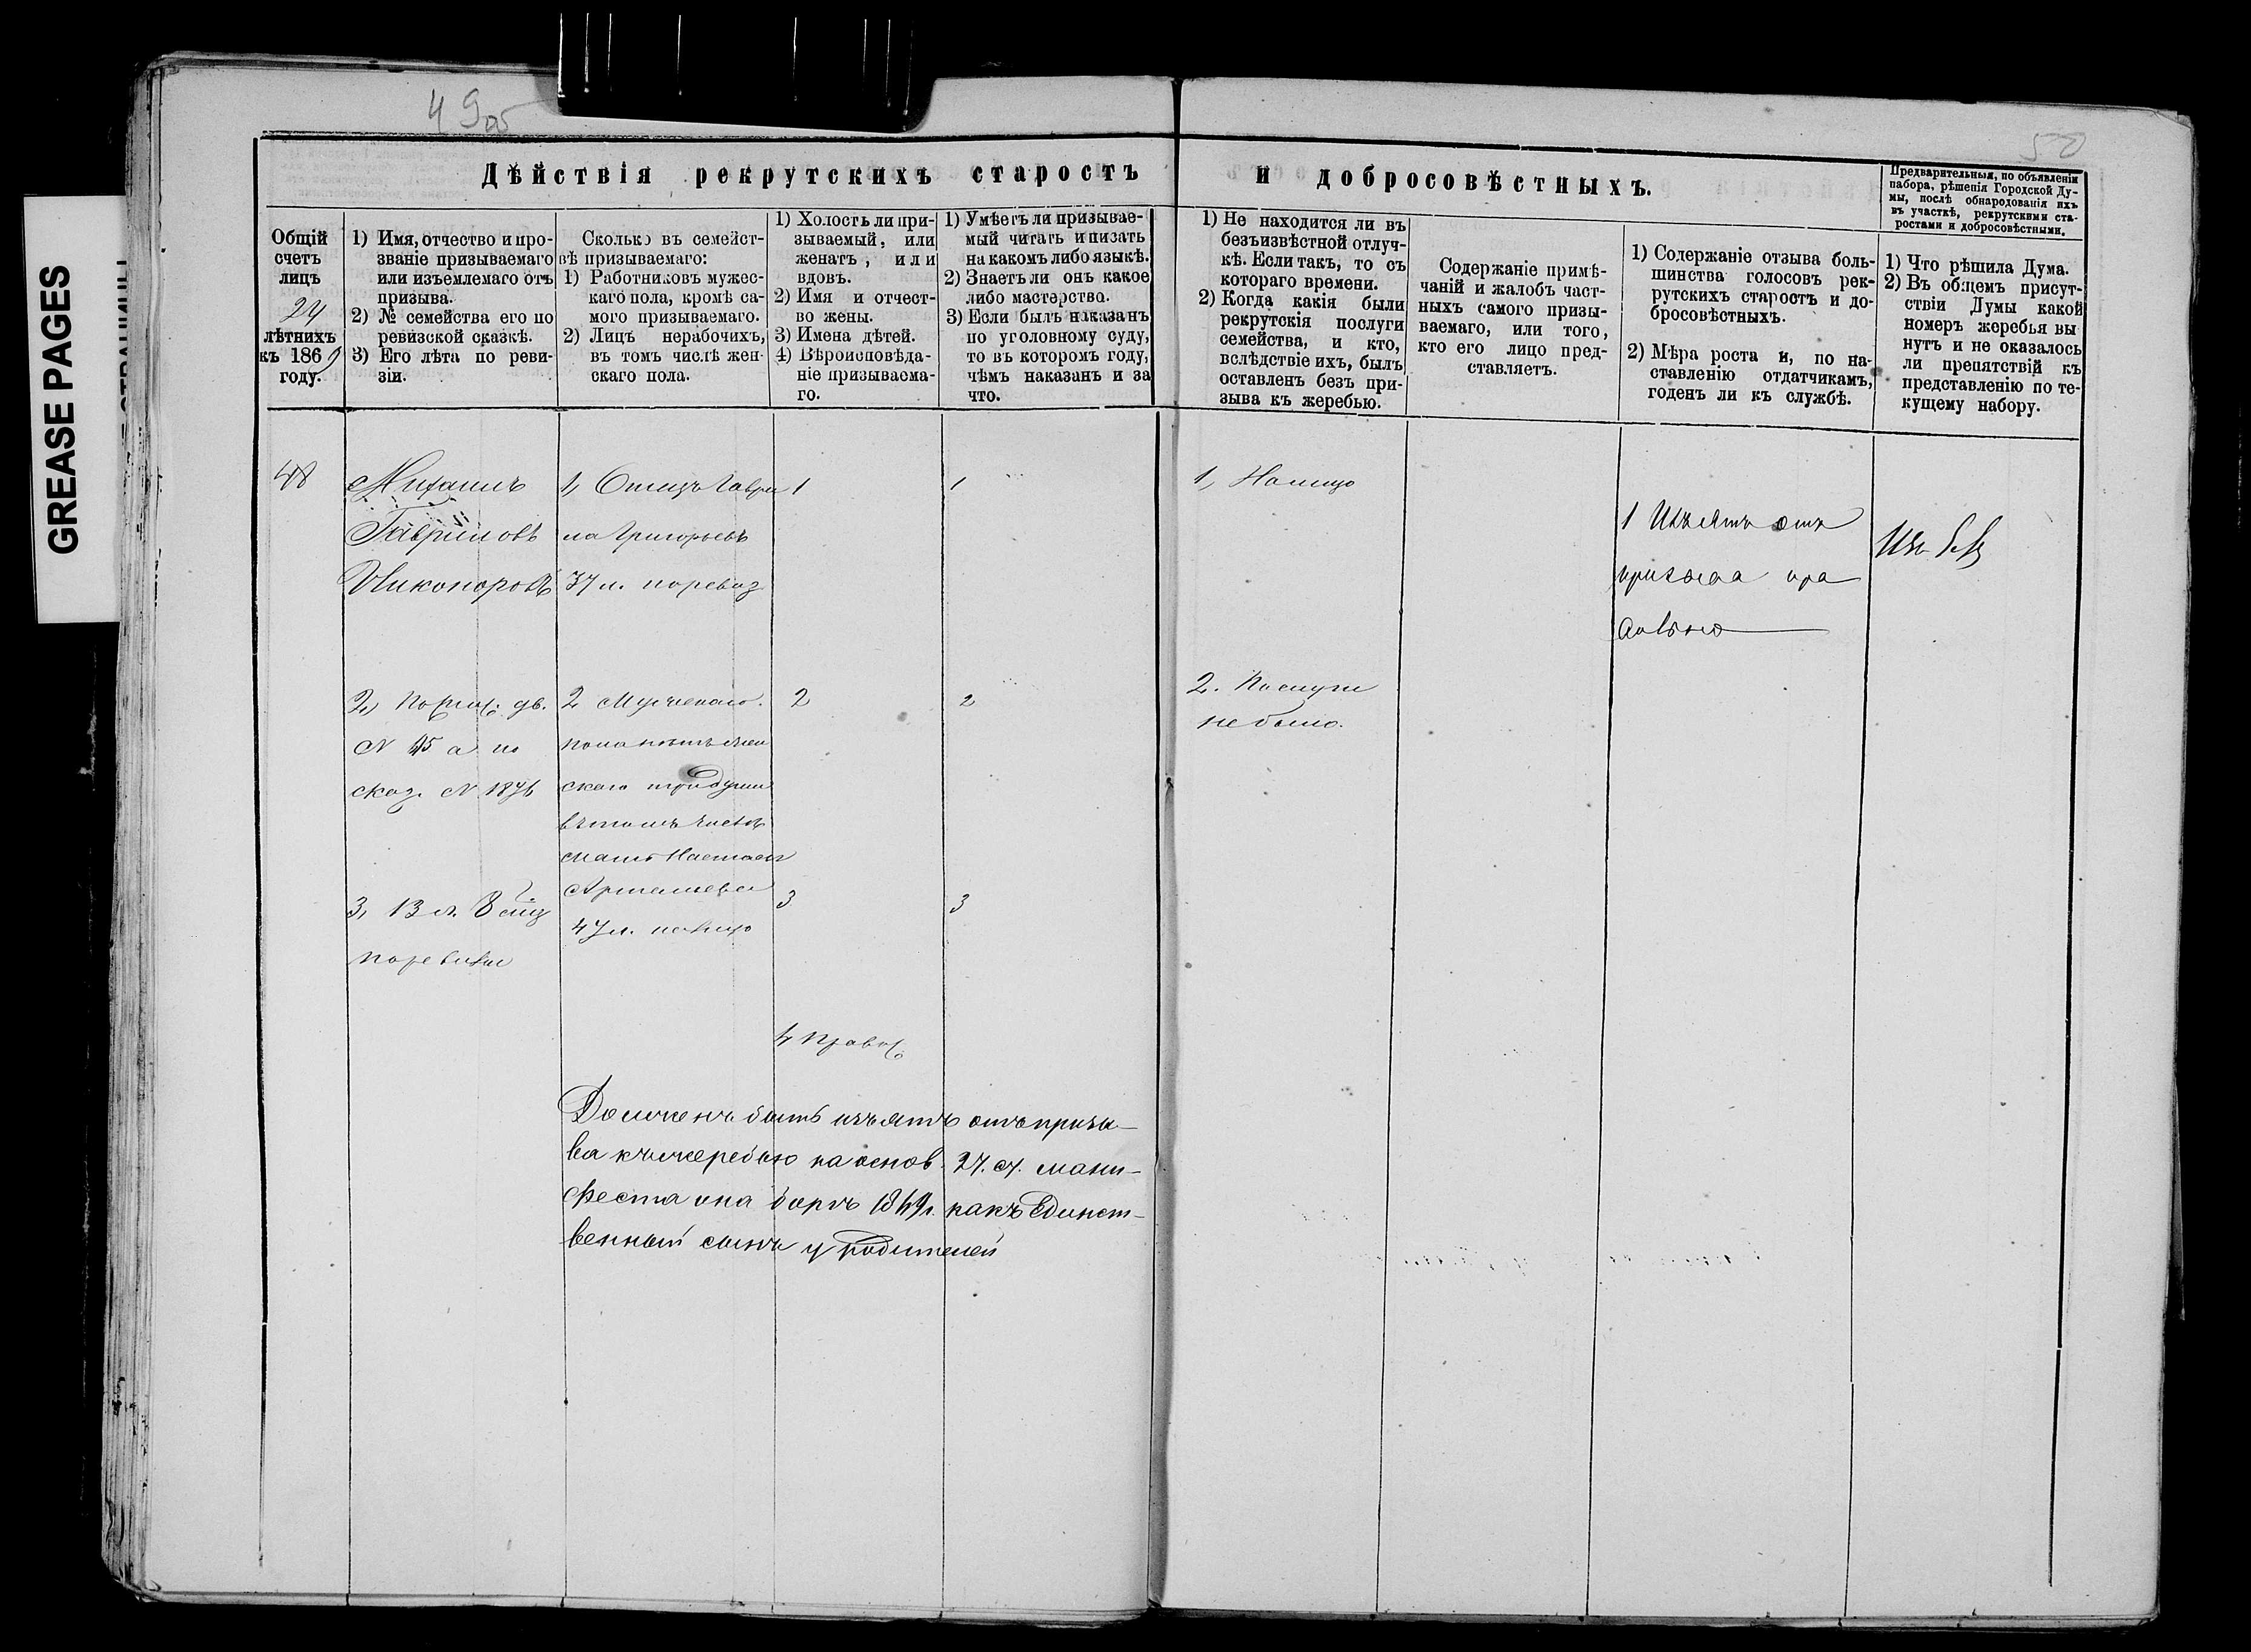 GREASE PAGES
49об
50
Дѣйствія рекрутскихъ старостъ и добросовѣстныхъ.
Предварительныя, по объявленіи
набора, рѣшенія Городской Ду-
мы, послѣ обнародованія ихъ
въ участкѣ, рекрутскими ста-
ростами и добросовѣстными.
Общій
счетъ
лицъ
24
лѣтнихъ
къ 1869
году.
1) Имя, отчество и про-
званіе призываемаго
или изъемлемаго отъ
призыва.
2) № семейства его по
ревизской сказкѣ.
3) Его лѣта по реви-
зіи.
Сколько въ семейст-
вѣ призываемаго:
1) Работниковъ мужес-
каго пола, кромѣ са-
мого призываемаго.
2) Лицъ нерабочихъ,
въ томъ числѣ жен-
скаго пола.
1) Холостъ ли при-
зываемый, или
женатъ, или
вдовъ.
2) Имя и отчест-
во жены.
3) Имена дѣтей.
4) Вѣроисповѣда-
ніе призываема-
го.
1) Умѣетъ ли призывае-
мый читать и писать
на какомъ либо языкѣ.
2) Знаетъ ли онъ какое
либо мастерство.
3) Если былъ наказанъ
по уголовному суду,
то въ которомъ году,
чѣмъ наказанъ и за
что.
1) Не находится ли въ
безъизвѣстной отлуч-
кѣ. Если такъ, то съ
котораго времени.
2) Когда какія были
рекрутскія послуги
семейства, и кто,
вслѣдствіе ихъ, былъ
оставленъ безъ при-
зыва къ жеребью.
Содержаніе примѣ-
чаній и жалобъ част-
ныхъ самого призы-
ваемаго, или того,
кто его лицо пред-
ставляетъ.
1) Содержаніе отзыва боль-
шинства голосовъ рек-
рутскихъ старостъ и до-
бросовѣстныхъ.
2) Мѣра роста и, по на-
ставленію отдатчикамъ,
годенъ ли къ службѣ.
1) Что рѣшила Дума.
2) Въ общемъ присут-
ствіи Думы какой
номеръ жеребья вы
нутъ и не оказалось
ли препятствій къ
представленію по те-
кущему набору.
48
Михаилъ
Гавриловъ
Никоноровъ
2, по
N 45 а по
сказ. N 1876
3, 13 л.
по ревизіи
1, Отецъ Гаври
ла Григорьевъ
37 л. по ревиз
2 Мужескаго
пола нѣтъ жен
скаго три души
въ томъ числѣ
мать Настасья
47 л. на лицо
1
2
3
4 Правос.
1
2
3
1, Налицо
2. Послуги
не было.
1 Изъять отъ
призыва пра
вильно
Долженъ быть изъятъ отъ призы-
ва къ жеребью на основ. 27. ст. мани-
феста о на борѣ 1869г. какъ Единст-
венный сынъ у родителей